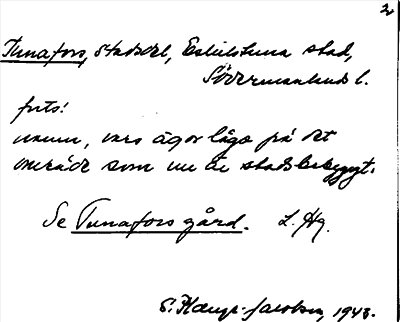 2
Tunafors, stadsdel, Eskilstuna stad,
Södermanlands l.
forts:
namn, vars ägor låge på det
område som nu är stadsbebyggt.
Se Tunafors gård. L. Hg.
1943.